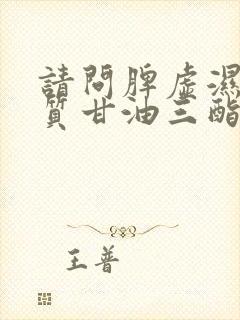 請問脾虛濕
質甘油三酯
王普